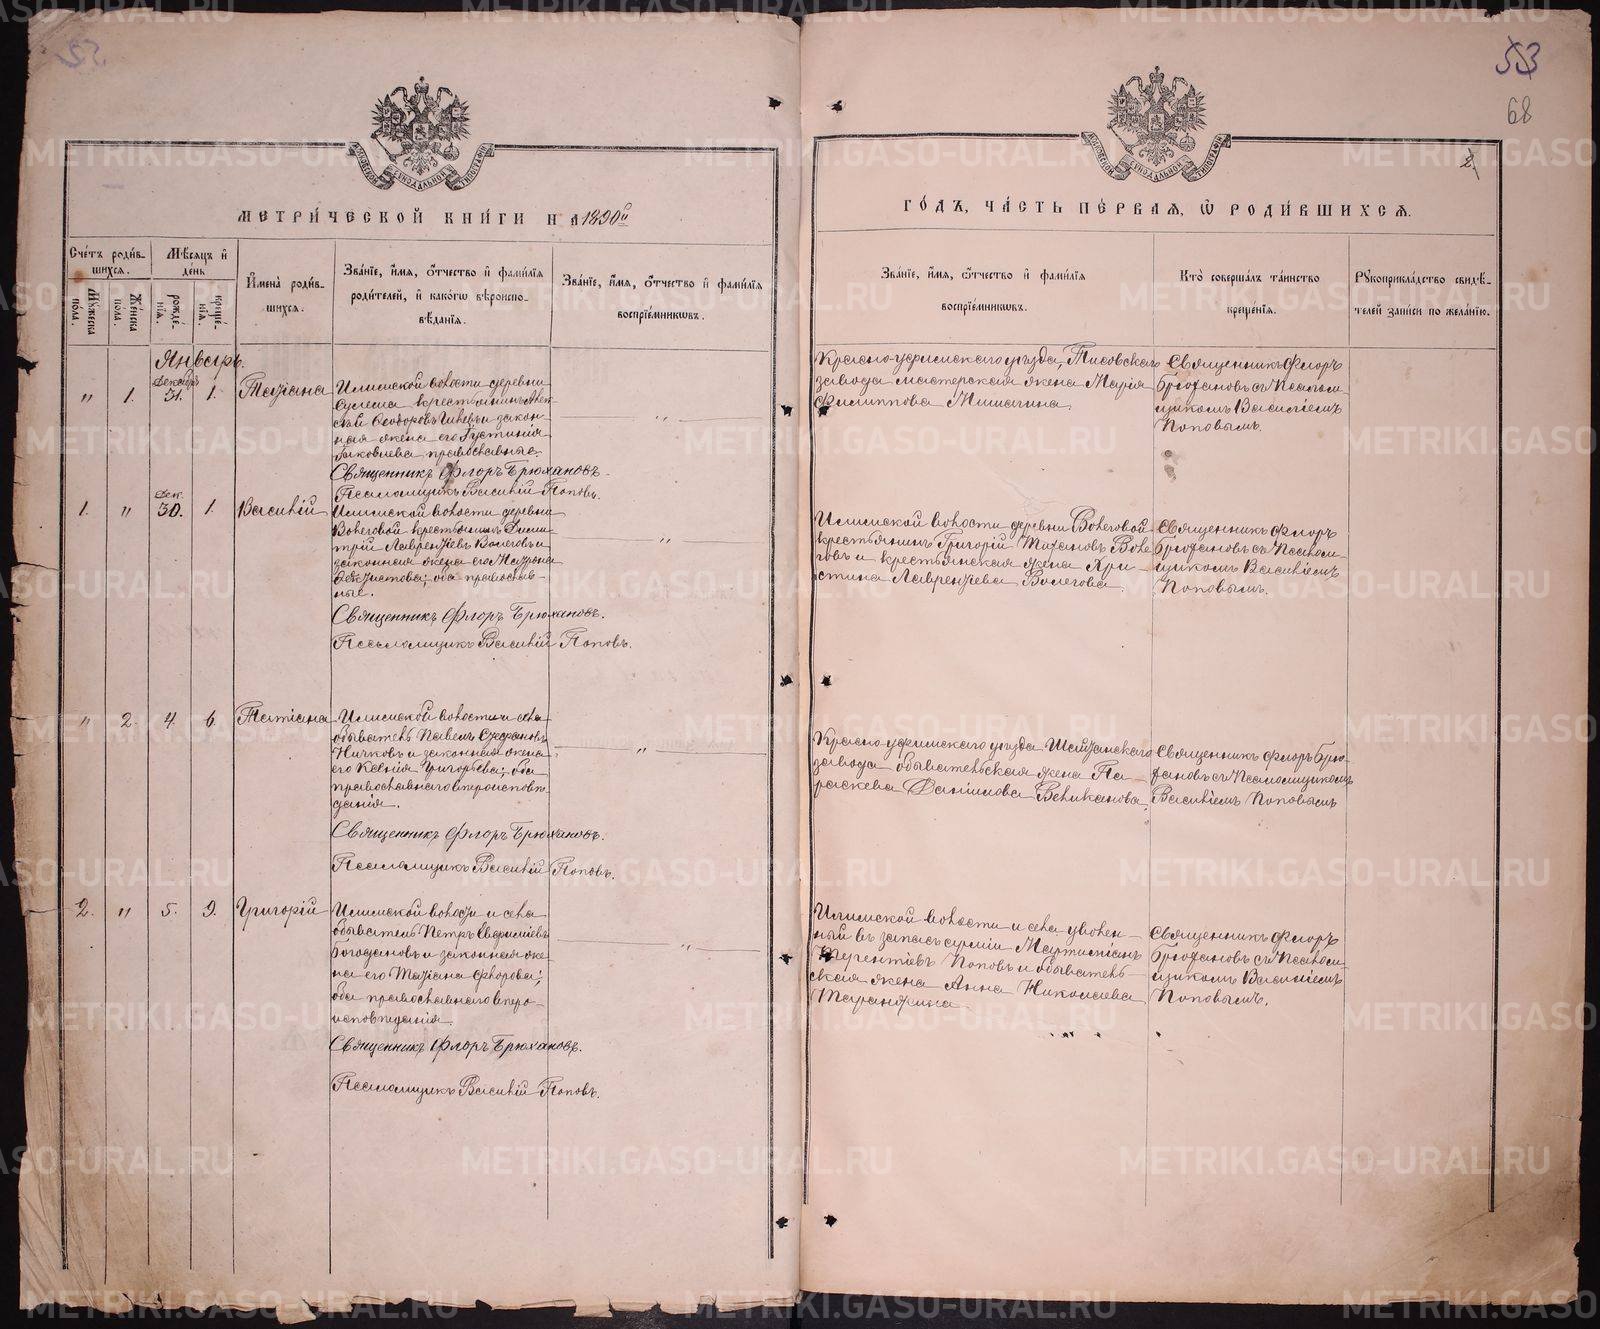 53
68
2.
МЕТРИ́ЧЕСКОЙ КНИ́ГИ НА 1890й
Сче́тъ роди́в-
шихся.
Му́жеска
пола.
Же́нска
пола.
Мѣ́сяцъ и҆
де́нь
рожде́-
нїя.
креще́-
нїя.
И҆мена̀ роди́в-
шихся.
Зва́нїе, и҆́мя, ѻ҆́тчество и҆ фами́лїя
роди́телей, и҆ како́гѡ вѣроиспо-
вѣ́данїя.
Зва́нїе, и҆́мя, ѻ҆́тчество и҆ фами́лїя
воспрїе́мникѡвъ.
Январь.
" 1. Декабрь 31. 1. Татіана
Илимской волости деревни
Сулема крестьянинъ
Ѳеодоровъ и закон-
ная жена его Густинія
Яковлева, православные.
Священникъ Флоръ Брюхановъ.
Псаломщикъ Василій Поповъ.
1. " Дек. 30. 1. Василій
Илимской волости деревни
Волеговой крестьянинъ Дими-
трій Лаврентіевъ Волеговъ и
законная жена его
оба православ-
ные.
Священникъ Флоръ Брюхановъ.
Псаломщикъ Василій Поповъ.
" 2. 4. 6. Татіана
Илимской волости и села
обыватель Павелъ
и законная жена
его Ксенія Григорьева, оба
православнаго вѣроисповѣ-
данія.
Священникъ Флоръ Брюхановъ.
Псаломщикъ Василій Поповъ.
2. " 5. 9. Григорій
Илимской волости и села
обыватель Петръ Евфиміевъ
Богодановъ и законная же-
на его Татіана Флорова;
оба православнаго вѣро-
исповѣданія.
Священникъ Флоръ Брюхановъ.
Псаломщикъ Василій Поповъ.
ГО́ДЪ, ЧА́СТЬ ПЕ́РВАЯ, Ѡ҆ РОДИ́ВШИХСЯ.
Зва́нїе, и҆́мя, ѻ҆́тчество и҆ фами́лїя
воспрїе́мникѡвъ.
Кто̀ соверша́лъ та́инство
креще́нїя.
Рꙋкоприкла́дство свидѣ́-
телей за́писи по жела́нїю.
Красно-уфимскаго уѣзда, Тисовскаго
завода мастерская жена Марія
Филиппова Мишагина.
Священникъ Флоръ
Брюхановъ съ Псалом-
щикомъ Василіемъ
Поповымъ.
Илимской волости деревни Волеговой
крестьянинъ Григорій Титановъ Воле
говъ и крестьянская жена Хри-
стина Лаврентіева Волегова.
Священникъ Флоръ
Брюхановъ съ Псалом-
щикомъ Василіемъ
Поповымъ.
Красно-уфимскаго уѣзда Шайтанскаго
завода обывательская жена Па-
раскева Даніилова Великанова.
Священникъ Флоръ Брю-
хановъ съ Псаломщикомъ
Василіемъ Поповымъ
Илимской волости и села уволен-
ный въ запасъ арміи Мартиніанъ
Терентіевъ Поповъ и обыватель-
ская жена Анна Николаева
Таранжина.
Священникъ Флоръ
Брюхановъ съ Псалом-
щикомъ Василіемъ
Поповымъ.
METRIKI.GASO-URAL.RU